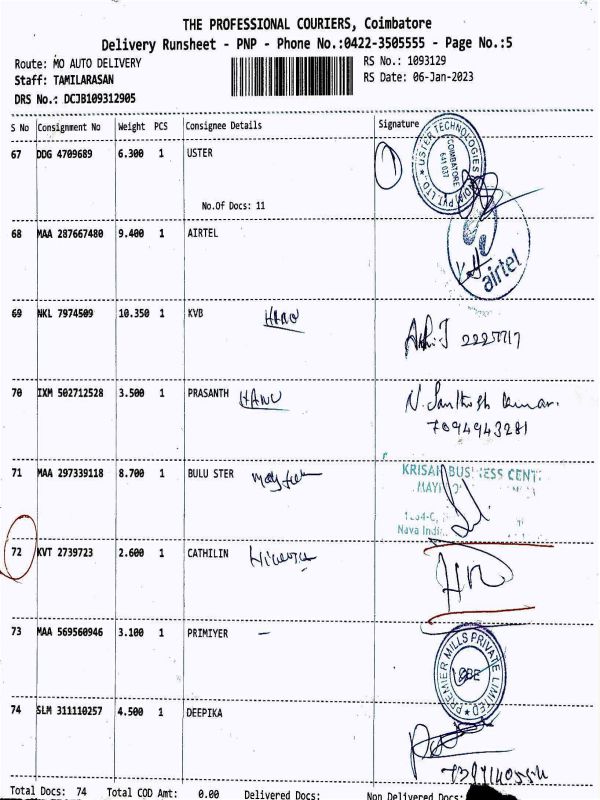 THE PROFESSIONAL COURIERS, Coimbatore
Delivery Runsheet - PNP - Phone No.:0422-3505555 - Page No.:5
Route: MO AUTO DELIVERY
RS No.: 1093129
Staff: TAMILARASAN
RS Date: 06-Jan-2023
DRS No.: DCJB109312905
S No Consignment No Weight PCS Consignee Details Signature
67 DDG 4709689 6.300 1 USTER
USTER TECHNOLOGIES
COIMBATORE
641 037
No.Of Docs: 11
68 MAA 287667480 9.400 1 AIRTEL
airtel
69 NKL 7974509 10.350 1 KVB
70 IXM 502712528 3.500 1 PRASANTH HANU N. Santhosh Kumar.
7094943281
71 MAA 297339118 8.700 1 BULU STER
KRISAH BUSINESS CENT
Nava Indi
72 KVT 2739723 2.600 1 CATHILIN
HR
73 MAA 569560946 3.100 1 PRIMIYER -
PREMIER MILLS PRIVATE LIMITED
CBE
74 SLM 311110257 4.500 1 DEEPIKA
Total Docs: 74 Total COD Amt: 0.00 Delivered Docs: Non Delivered Docs: